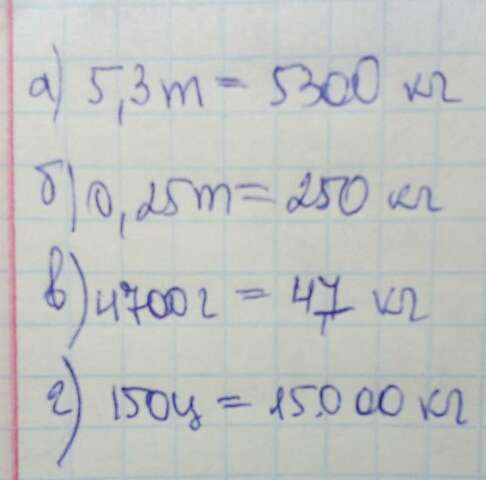 а) 5,3 т = 5300 кг
б) 0,25 т = 250 кг
в) 4700 г = 4,7 кг
г) 150 ц = 15.000 кг